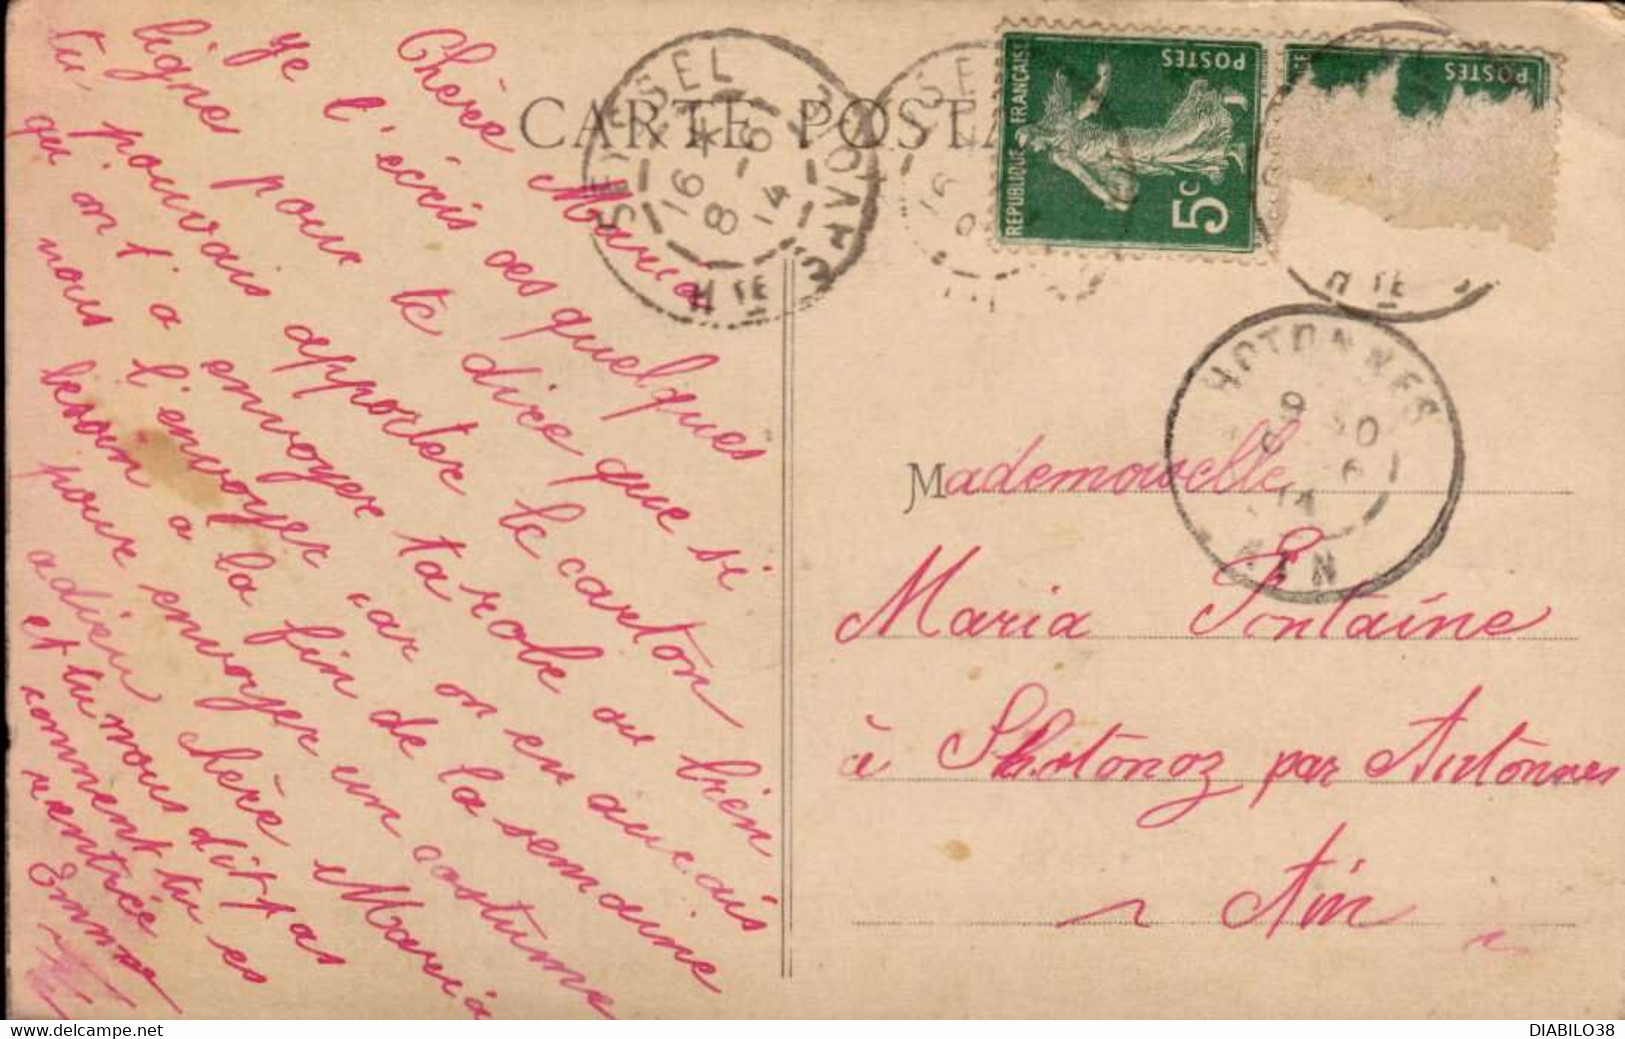 CARTE POSTA
SEYSSEL
16 * -6
8 14
HTE SAVOIE
REPUBLIQUE FRANÇAISE
POSTES
5c
POSTES
HTE
HOTONNES
AIN
Chère Maria
ye t'écris ses quelques
lignes pour te dire que si
tu pouvais apporter le carton
qu'on t'a envoyer ta robe ou bien
nous l'envoyer car on en aurais
besoin a la fin de la semaine
pour envoyer un costume
adieu chère Maria
et tu nous dit pas
comment tu es
rentrée
Emma
Mademoiselle
Maria Fontaine
à Shotonoz par Autonnes
Ain
DIABILO38